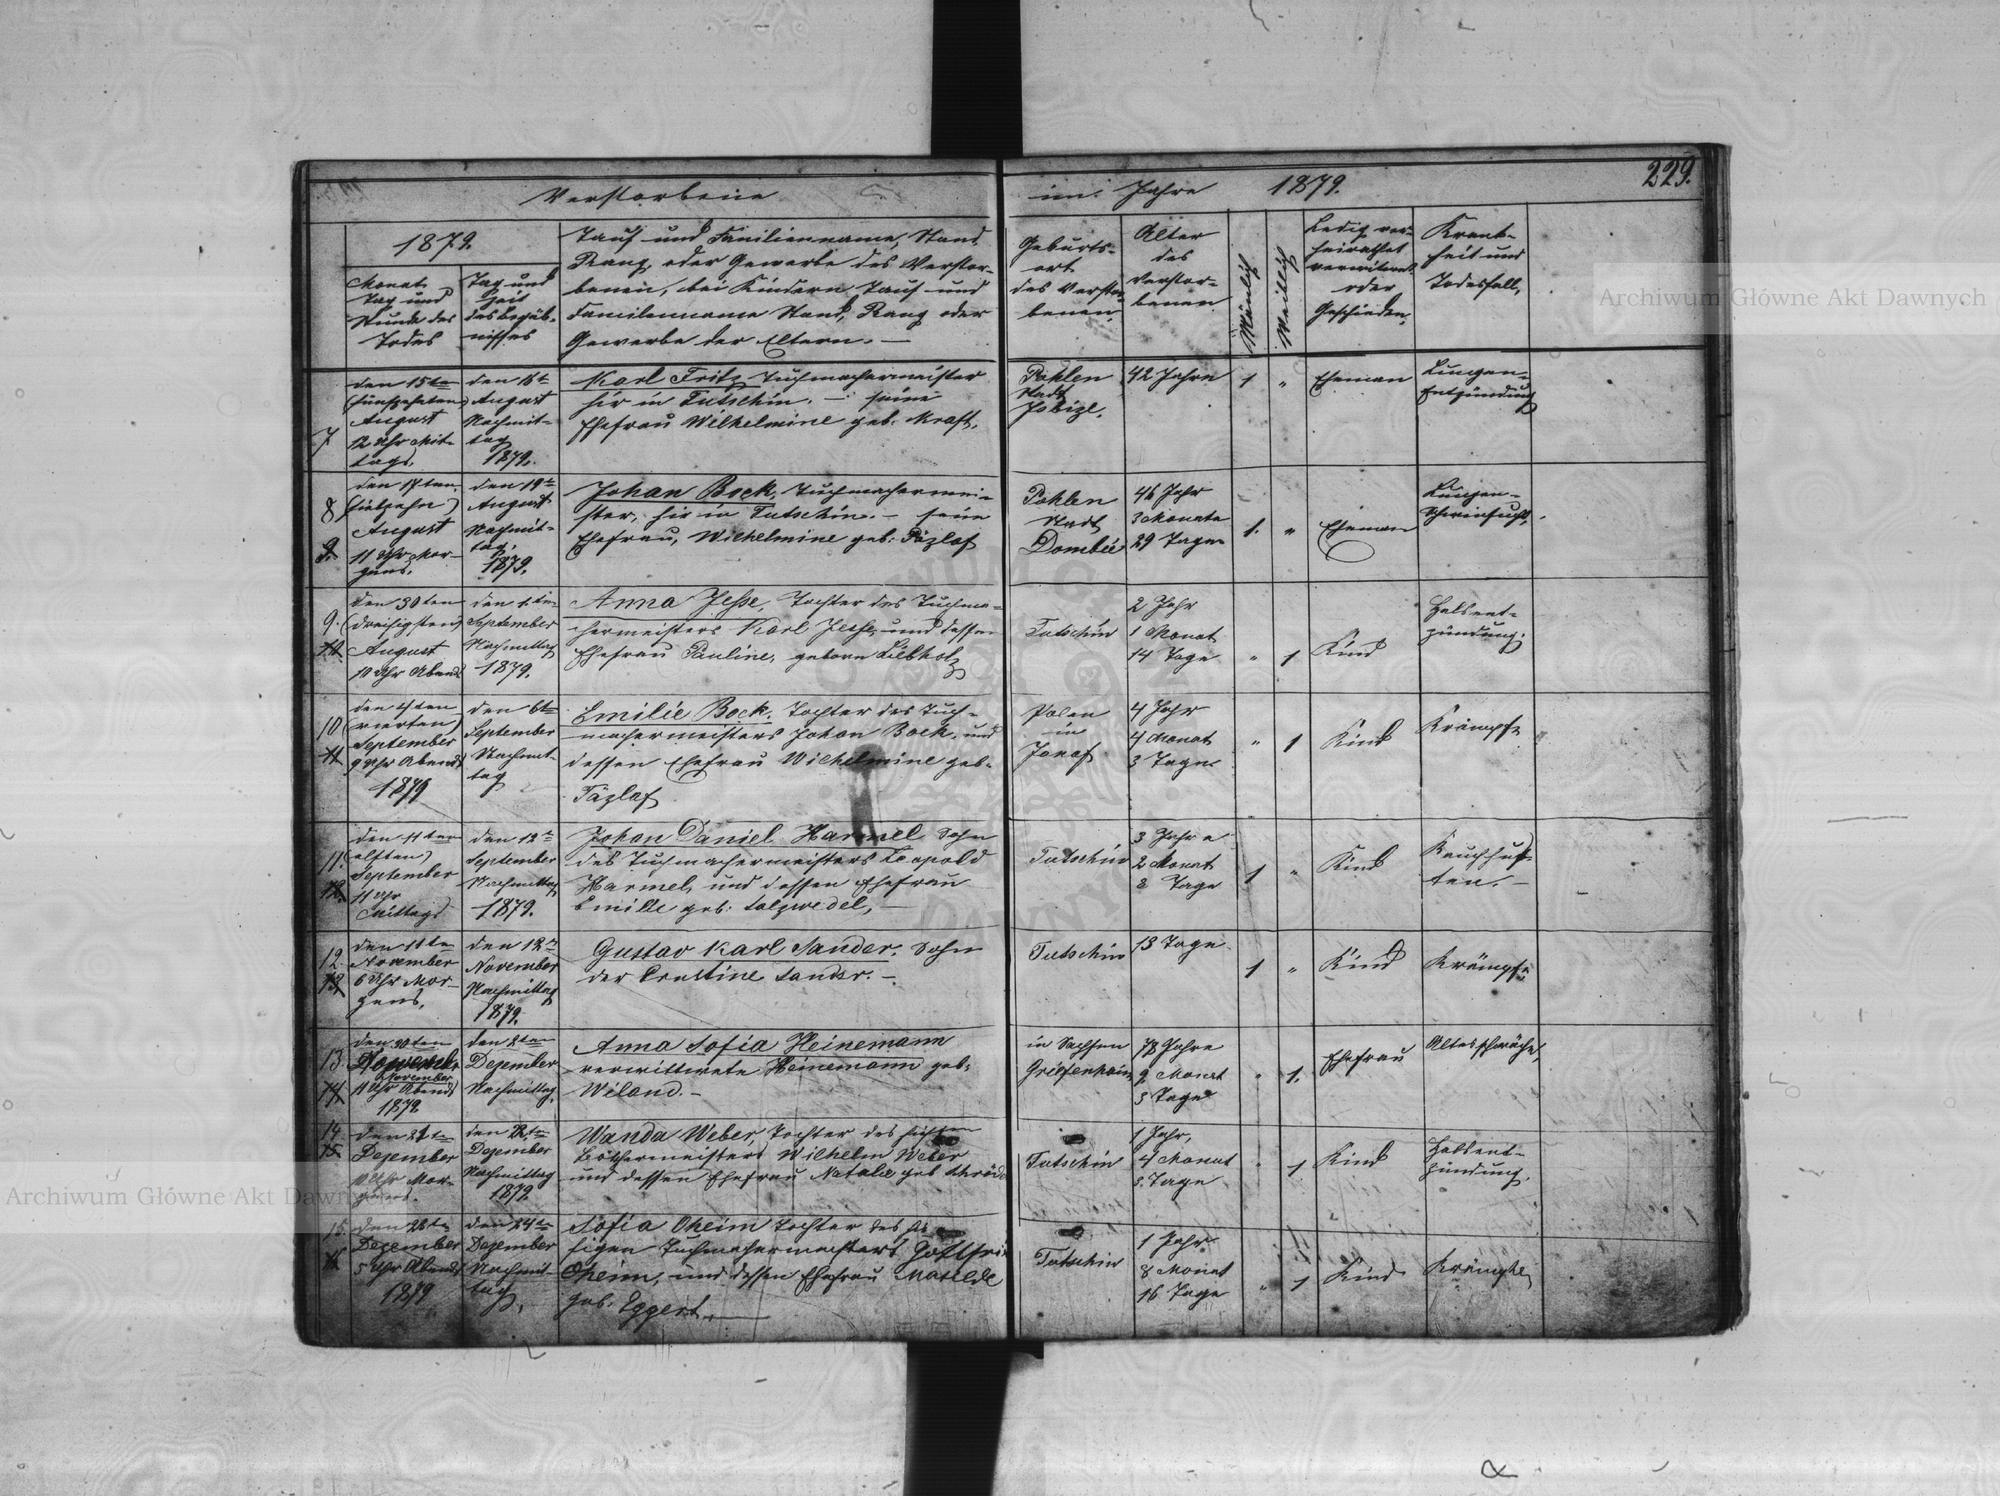 Verstorbene im Jahre 1879.
229.
1879.
Monat
Tag und
Stunde des
Todes
Tag und
Zeit
des Begäb-
nisses
Tauf und Familienname, Stand
Rang, oder Gewerbe des Verstor-
benen, bei Kindern Tauf und
Familienname Stand, Rang oder
Gewerbe der Eltern. —
Geburts-
ort
des Verstor-
benen
Alter
des
Verstor-
benen
Mänlich
Weiblich
Ledig ver-
heirathet
verwitwet
oder
Geschieden.
Krank-
heit und
Todesfall.
7
den 15ten
(fünfzehnten)
August
12 Uhr Mit-
tags.
den 18te
August
Nachmit-
tag
1879.
Karl Fritz Tuchmachermeister
hir in Tutschin. — seine
Ehefrau Wilhelmine geb. Kraft.
Pohlen
Stadt
42 Jahre
1
"
Eheman
Lungen-
Entzündung
8
den 17ten
(siebzehn)
August
11 Uhr Mor-
gens.
den 19te
August
Nachmit-
tag.
1879.
Johan Bock, Tuchmachermei-
ster, hir in Tutschin. — seine
Ehefrau, Wilhelmine geb: Päzlaf
Pohlen
Stadt
Dombie
46 Jahr
3 Monate
29 Tage
1.
"
Eheman
Lungen-
Schwinsucht.
9.
den 30ten
(dreisigsten)
August
10 Uhr Abend
den 1.ten
September
Nachmittag
1879.
Anna Jesse, Tochter des Tuchma-
chermeisters Karl Jesse, und dessen
Ehefrau Pauline, geborn Liebholz
Tutschin
2 Jahr
1 Monat
14 Tage
"
1
Kind
Halsent-
zündung.
10
den 4ten
(vierten)
September
9 Uhr Abends
1879
den 6te
September
Nachmit-
tag
Emilie Bock. Tochter des Tuch-
machermeisters Johan Bock. und
dessen Ehefrau Wilhelmine geb.
Päzlaf
Polen
in
4 Jahr
4 Monat
3 Tage
"
1
Kind
Krämpfe
11.
den 11ten
(elften)
September
11 Uhr
Mittags
den 12te
September
Nachmittag
1879.
Johan Daniel Harmel Sohn
des Tuchmachermeisters Leopold
Harmel, und dessen Ehefrau
Emilie geb: Salzwedel, —
Tutschin
3 Jahre
2 Monat
8 Tage
1
"
Kind
Keuchhus-
ten. —
12.
den 10te
November
6 Uhr Mor-
gens.
den 12te
November
Nachmittag
1879.
Gustav Karl Sander. Sohn
der Ernstine Sander. —
Tutschin
13 Tage
1
"
Kind
Krämpfe
13
den 30ten
November
11 Uhr Abends
1879
den 2ten
Dezember
Nachmittag.
Anna Sofia Heinemann
verwittwete Heinemann geb:
Wiland. —
in Sachsen
Griefenhain
78 Jahre
9 Monat
3 Tage
"
1.
Ehefrau
Altesschwäche
14
den 21te
Dezember
10 Uhr Mor-
gens.
den 22.te
Dezember
Nachmittag
1879
Wanda Weber, Tochter des hisigen
Böthermeisters Wilhelm Weber
und dessen Ehefrau Natalie geb Schröde
Tutschin
1 Jahr,
4 Monat
3. Tage
"
1
Kind
Halsent-
zündung.
15.
den 22te
Dezember
5 Uhr Abends
1879
den 24te
Dezember
Nachmit-
tag.
Sofia Oheim Tochter des hi-
sigen Tuchmachermeisters Gottfri
Oheim, und dessen Ehefrau Matilde
geb. Eggert. —
Tutschin
1 Jahr
8 Monat
16 Tage
"
1
Kind
Krämpfe
Archiwum Główne Akt Dawnych
Archiwum Główne Akt Dawnych